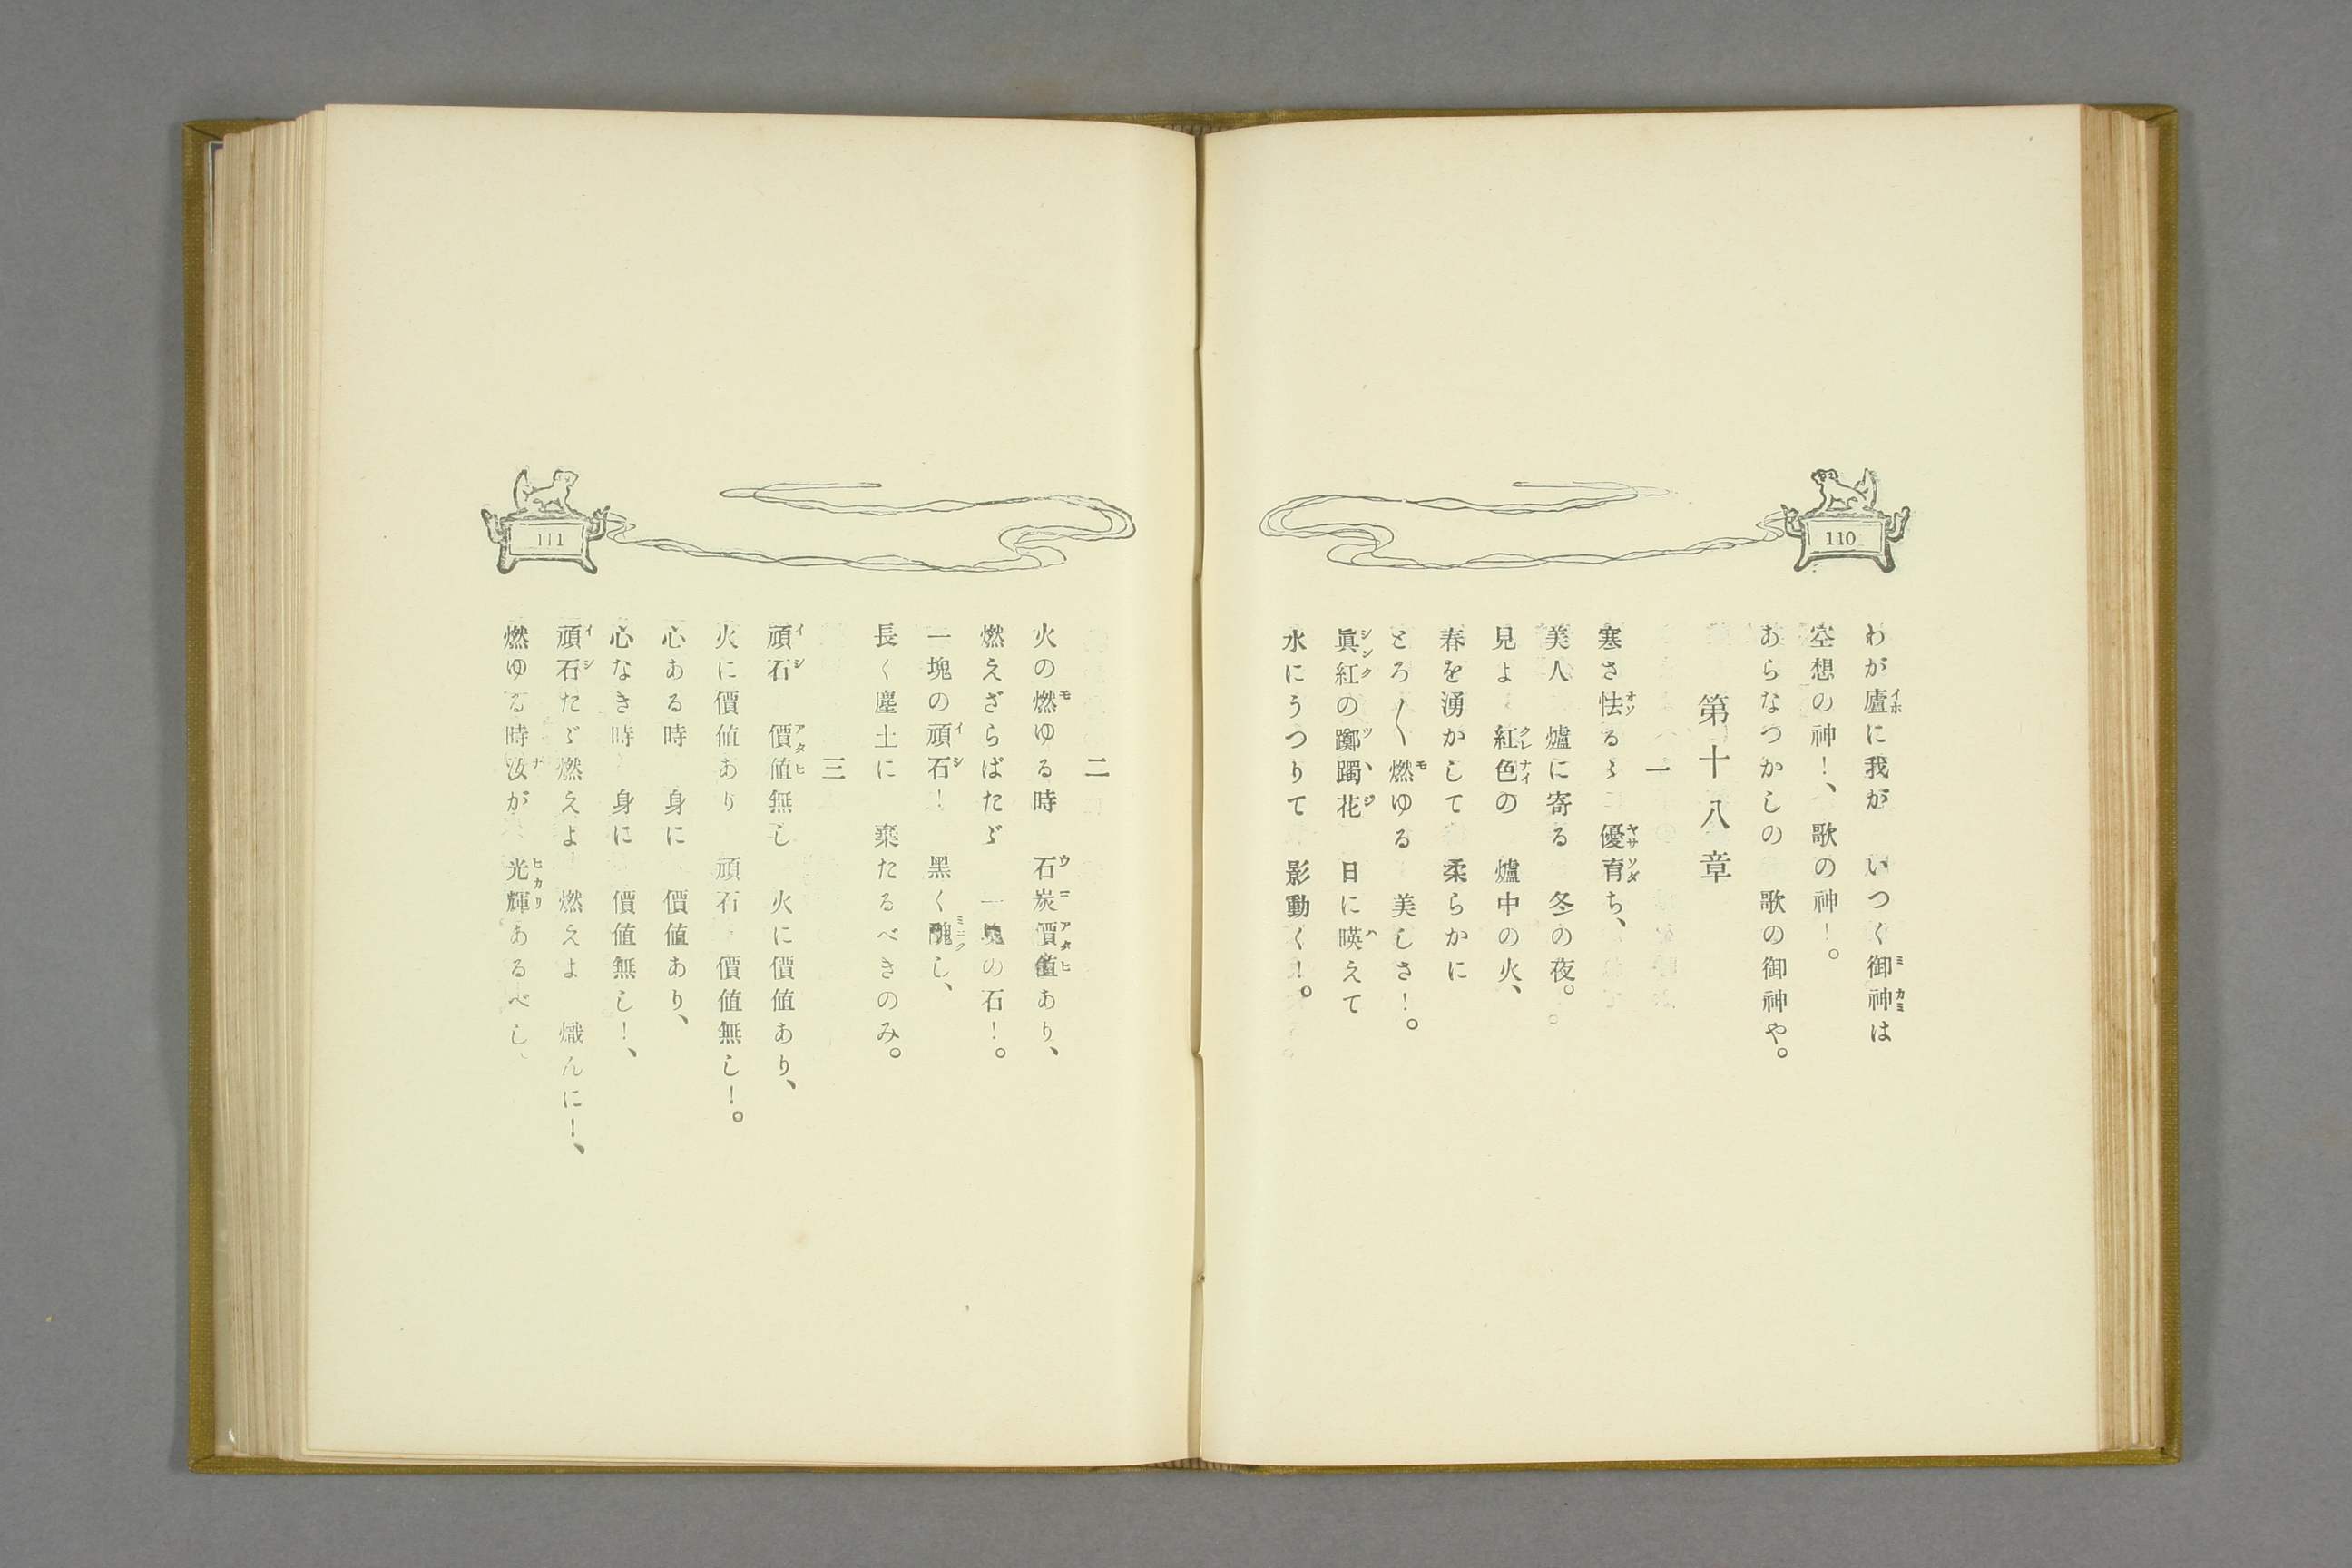 110
わが廬に我が　いつく御神は
空想の神！、歌の神！。
あらなつかしの　歌の御神や。
第十八章
一
寒さ怯るゝ　優育ち、
美人　爐に寄る　冬の夜。
見よ　紅色の　爐中の火、
春を湧かして　柔らかに
とろ〳〵燃ゆる　美しさ！。
眞紅の躑躅花　日に暎えて
水にうつりて　影動く！。
111
二
火の燃ゆる時　石炭價値あり、
燃えざらばたゞ　一塊の石！。
一塊の頑石！　黑く醜し、
長く塵土に　棄たるべきのみ。
三
頑石　價値無し　火に價値あり、
火に價値あり　頑石　價値無し！。
心ある時　身に　價値あり、
心なき時　身に　價値無し！、
頑石たゞ燃えよ　燃えよ　熾んに！、
燃ゆる時汝が　光輝あるべし、